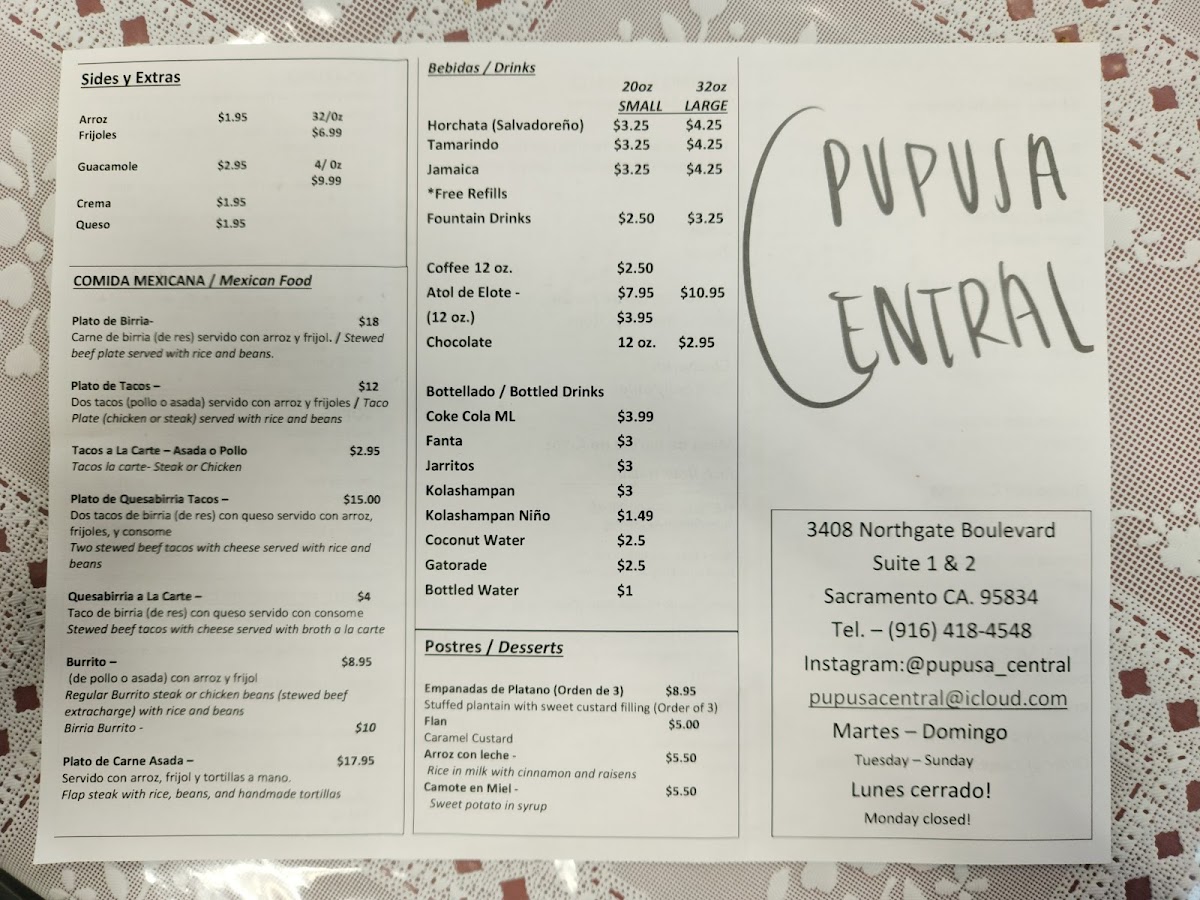 Sides y Extras
Arroz $1.95 32/0z
Frijoles $6.99
Guacamole $2.95 4/ 0z
$9.99
Crema $1.95
Queso $1.95
COMIDA MEXICANA / Mexican Food
Plato de Birria- $18
Carne de birria (de res) servido con arroz y frijol. / Stewed
beef plate served with rice and beans.
Plato de Tacos – $12
Dos tacos (pollo o asada) servido con arroz y frijoles / Taco
Plate (chicken or steak) served with rice and beans
Tacos a La Carte – Asada o Pollo $2.95
Tacos la carte- Steak or Chicken
Plato de Quesabirria Tacos – $15.00
Dos tacos de birria (de res) con queso servido con arroz,
frijoles, y consome
Two stewed beef tacos with cheese served with rice and
beans
Quesabirria a La Carte – $4
Taco de birria (de res) con queso servido con consome
Stewed beef tacos with cheese served with broth a la carte
Burrito – $8.95
(de pollo o asada) con arroz y frijol
Regular Burrito steak or chicken beans (stewed beef
extracharge) with rice and beans
Birria Burrito - $10
Plato de Carne Asada – $17.95
Servido con arroz, frijol y tortillas a mano.
Flap steak with rice, beans, and handmade tortillas
Bebidas / Drinks
20oz 32oz
SMALL LARGE
Horchata (Salvadoreño) $3.25 $4.25
Tamarindo $3.25 $4.25
Jamaica $3.25 $4.25
*Free Refills
Fountain Drinks $2.50 $3.25
Coffee 12 oz. $2.50
Atol de Elote - $7.95 $10.95
(12 oz.) $3.95
Chocolate 12 oz. $2.95
Bottellado / Bottled Drinks
Coke Cola ML $3.99
Fanta $3
Jarritos $3
Kolashampan $3
Kolashampan Niño $1.49
Coconut Water $2.5
Gatorade $2.5
Bottled Water $1
Postres / Desserts
Empanadas de Platano (Orden de 3) $8.95
Stuffed plantain with sweet custard filling (Order of 3)
Flan $5.00
Caramel Custard
Arroz con leche - $5.50
Rice in milk with cinnamon and raisens
Camote en Miel - $5.50
Sweet potato in syrup
PUPUSA
CENTRAL
3408 Northgate Boulevard
Suite 1 & 2
Sacramento CA. 95834
Tel. – (916) 418-4548
Instagram:@pupusa_central
pupusacentral@icloud.com
Martes – Domingo
Tuesday – Sunday
Lunes cerrado!
Monday closed!